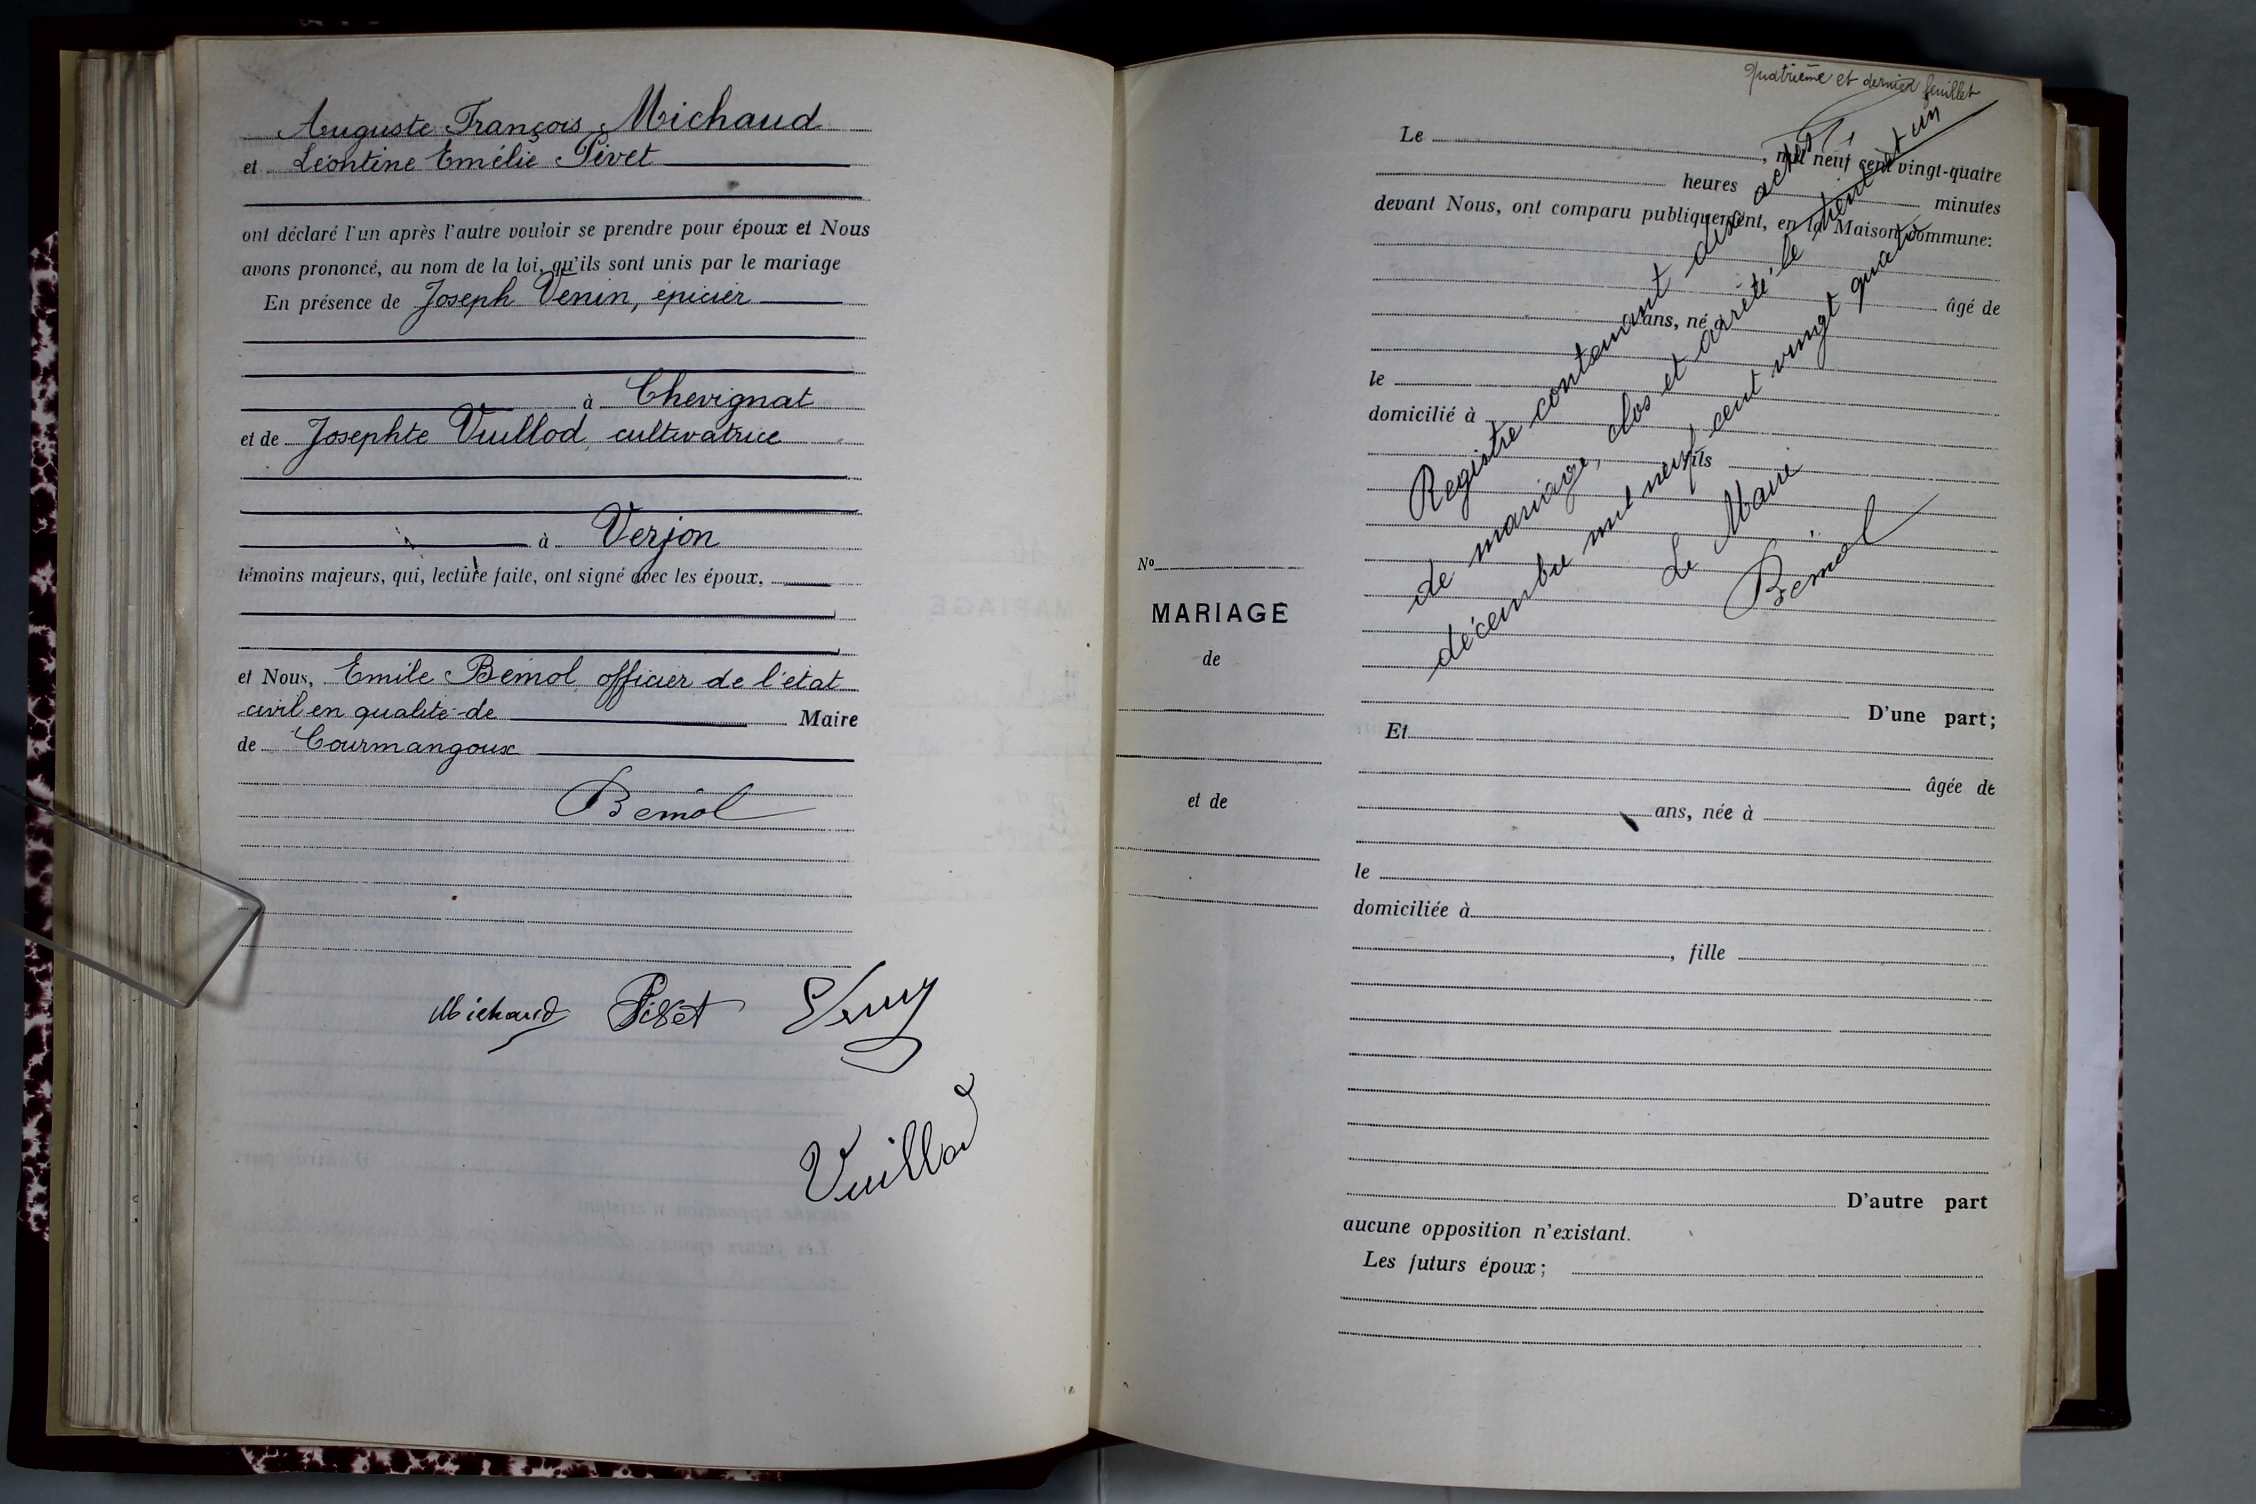 Auguste François Michaud
et Léontine Emélie Pivet
ont déclaré l'un après l'autre vouloir se prendre pour époux et Nous
avons prononcé, au nom de la loi, qu'ils sont unis par le mariage
En présence de Joseph Venin, épicier
à Chevignat
et de Josephte Vuillod, cultivatrice
à Verjon
témoins majeurs, qui, lecture faite, ont signé avec les époux,
et Nous, Emile Bémol officier de l'état
civil en qualité de Maire
de Courmangoux
Bémol
Michaud Pivet
Vuillod
Quatrième et dernier feuillet
Le , mil neuf cent vingt-quatre
heures minutes
devant Nous, ont comparu publiquement, en la Maison commune:
âgé de
ans, né
le
domicilié à
fils
Registre contenant dix actes
de mariage, clos et arrêté le trent et un
décembre mil neuf cent vingt quatre
Le Maire
Bémol
No
MARIAGE
de
et de
D'une part;
Et
âgée de
ans, née à
le
domiciliée à
, fille
D'autre part
aucune opposition n'existant.
Les futurs époux;